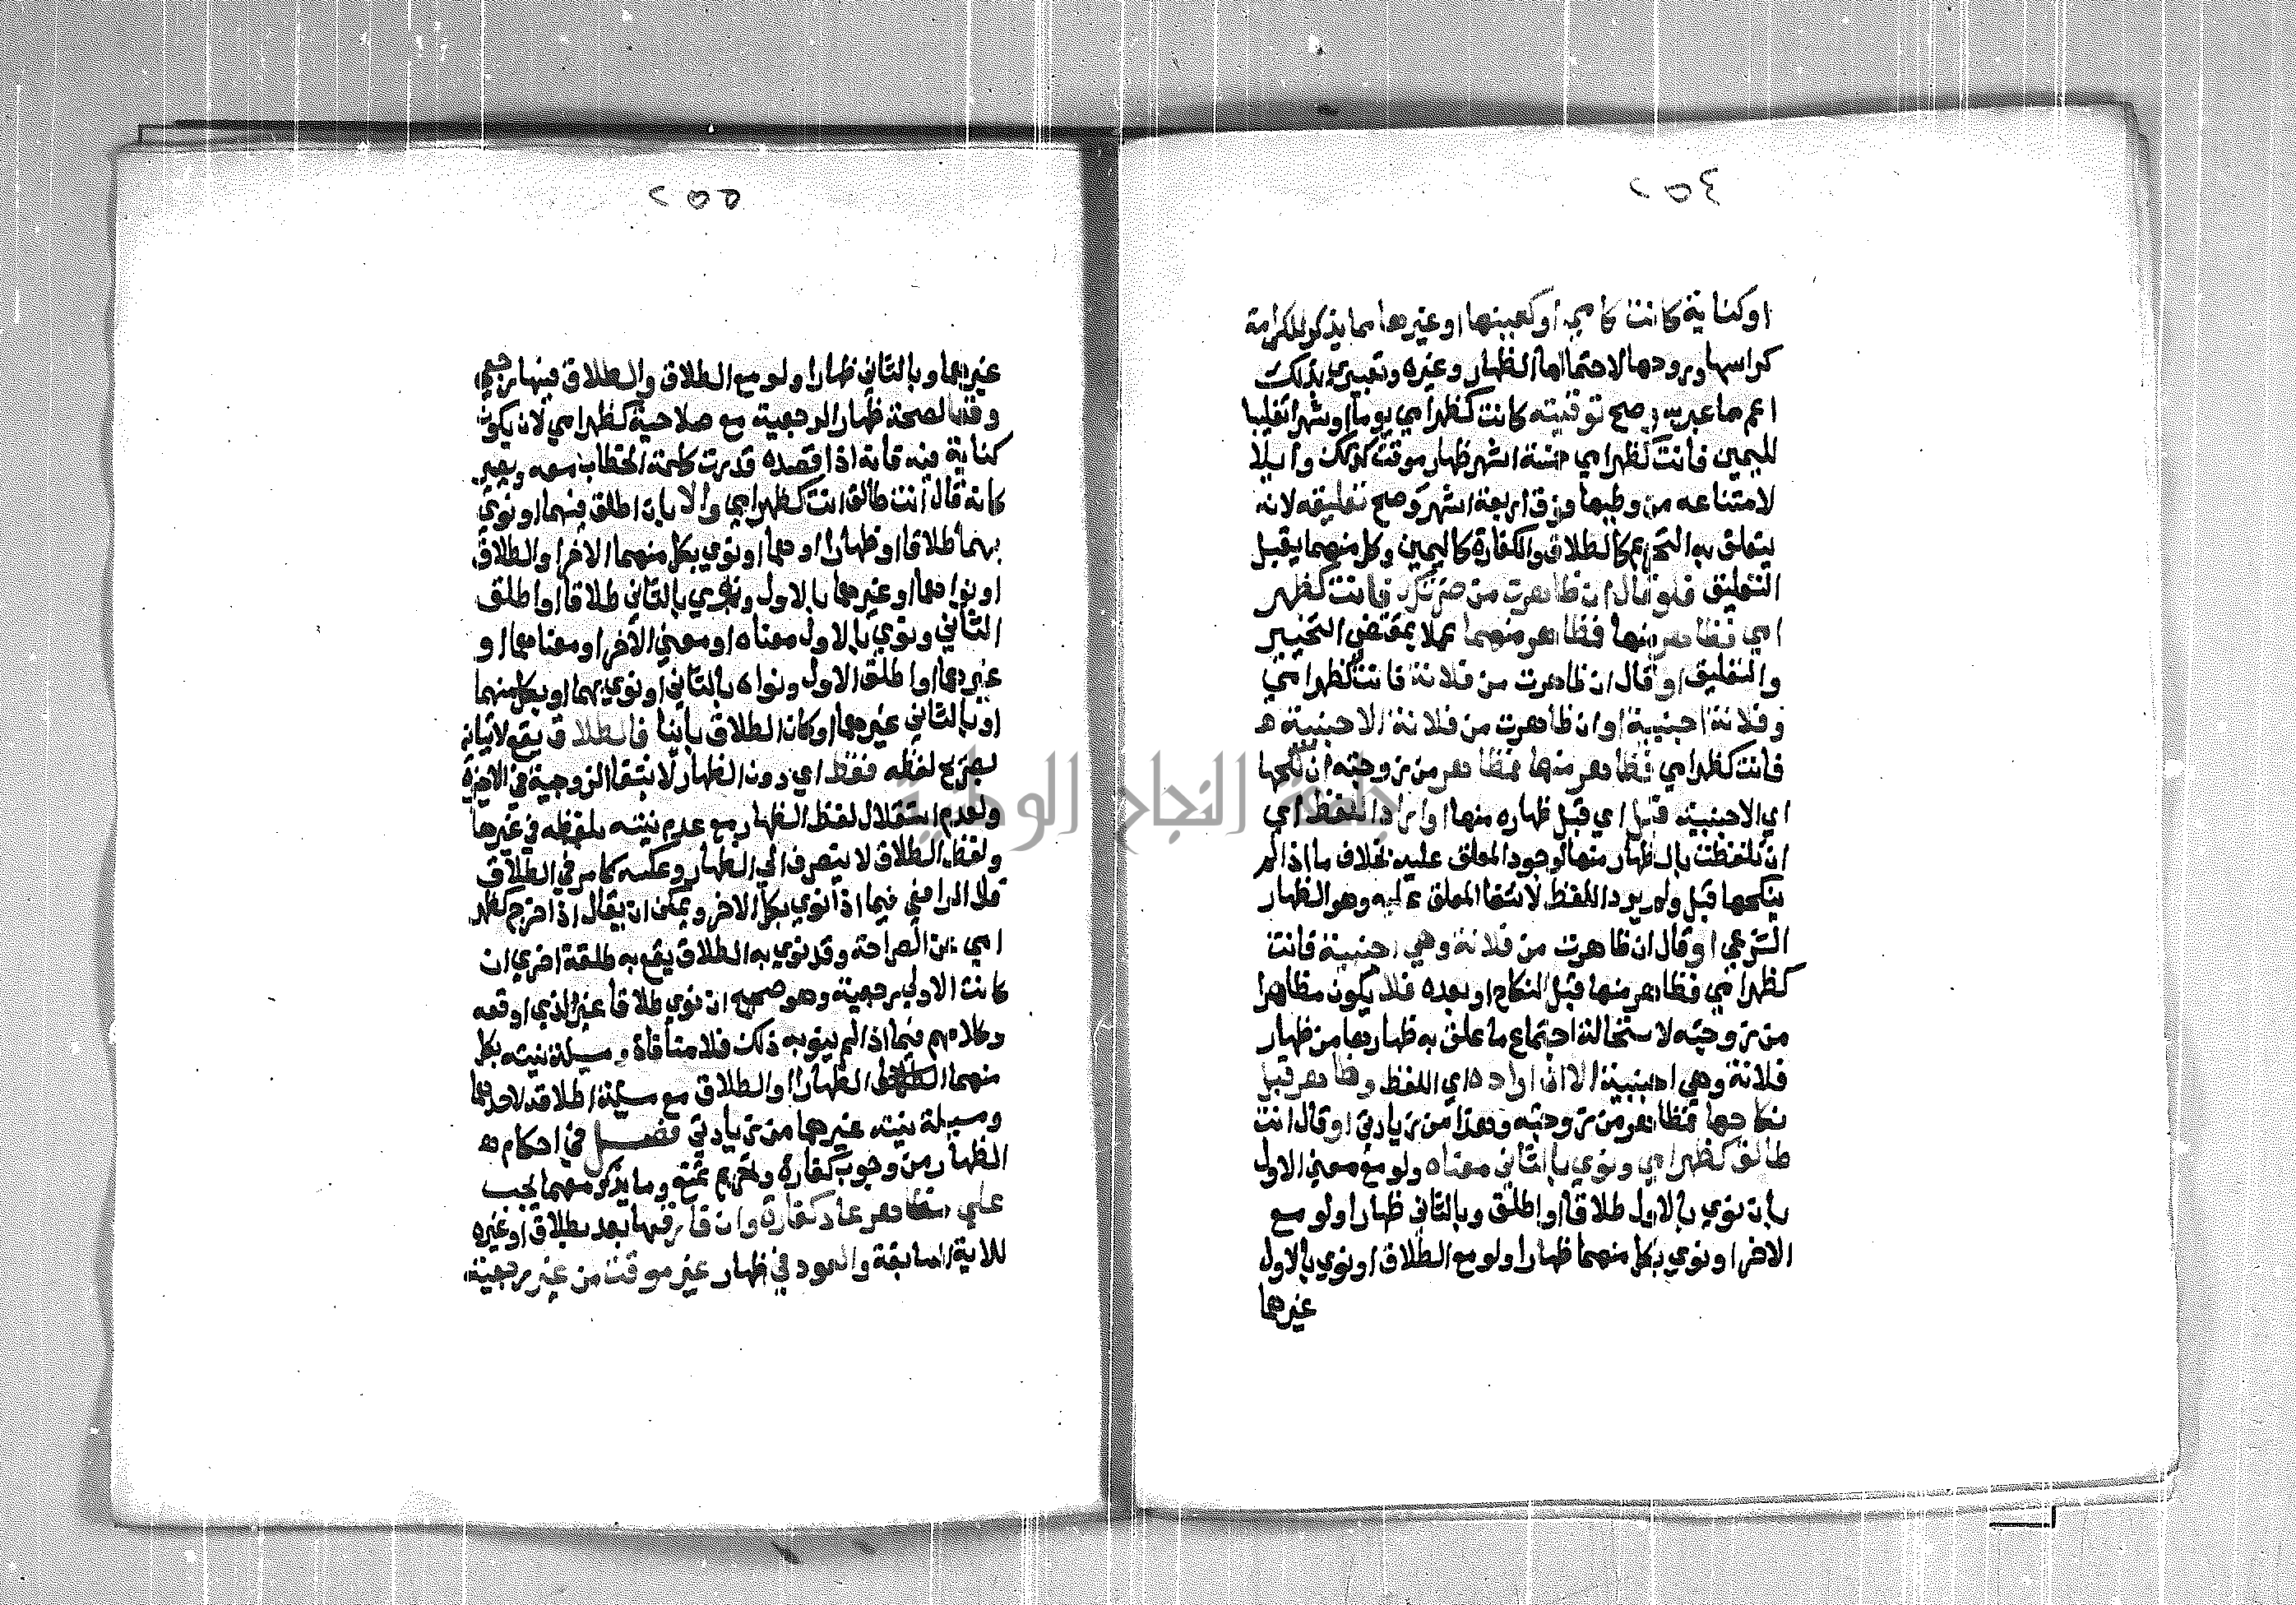 ٢٥٤
او كناية كانت كامي او كعينها او غيرها مما يذكر للكرامة
كراسها وروحها لاحتمالها الظهار وغيره وتعبيري بذلك
اعم مما عبر به وصح توقيته كانت كظهر امي يوما او شهرا تغليبا
لليمين فانت كظهر امي خمسة اشهر ظهار موقت كذلك وايلا
لامتناعه من وطيها فوق اربعة اشهر وصح تعليقه لانه
يتعلق به التحريم كالطلاق والكفارة كاليمين وكل منهما يقبل
التعليق فلو قال ان ظاهرت من ضرتك فانت كظهر
امي فظاهر منها فظاهر منهما عملا بمقتضى التنجيز
والتعليق او قال ان ظاهرت من فلانة فانت كظهر امي
وفلانة اجنبية او ان ظاهرت من فلانة الاجنبية
فانت كظهر امي فظاهر منها فمظاهر من زوجته ان نكحها
اي الاجنبية قبل اي قبل ظهاره منها او اراد اللفظ اي
ان تلفظت بالظهار منها لوجود المعلق عليه بخلاف ما اذا لم
ينكحها قبل ولم يرد اللفظ لانتفا المعلق عليه وهو الظهار
الشرعي او قال ان ظاهرت من فلانة وهي اجنبية فانت
كظهر امي فظاهر منها قبل النكاح او بعده فلا يكون مظاهرا
من زوجته لاستحالة اجتماع ما علق به ظهارها من ظهار
فلانة وهي اجنبية الا ان اراده اي اللفظ وظاهر قبل
نكاحها فمظاهر من زوجته وهذا من زيادتي او قال انت
طالق كظهر امي ونوي بالثاني معناه ولو مع معني الاول
بان نوي بالاول طلاقا او اطلق وبالثاني ظهارا ولو مع
الاخر او نوي بكل منهما ظهارا ولو مع الطلاق او نوي بالاول
غيرهما
٢٥٥
غيرهما وبالثاني ظهارا ولو مع الطلاق والطلاق فيهما رجعي
وقعا لصحة ظهار الرجعية مع صلاحية كظهر امي لان يكون
كناية فيه فانه اذا قصده قدرت كلمة الخطاب معه ويصير
كانه قال انت طالق انت كظهر امي والا بان اطلق فيهما او نوي
بهما طلاقا او ظهارا او هما او نوي بكل منهما الاخر او الطلاق
او نواهما او غيرهما بالاول ونوي بالثاني طلاقا او اطلق
الثاني ونوي بالاول معناه او معني الاخر او معناهما او
غيرهما او اطلق الاول ونواه بالثاني او نوي بهما او بكل منهما
او بالثاني غيرهما او كان الطلاق باينا فالطلاق يقع لاتيانه
بصريح لفظه فقط اي دون الظهار لانتفا الزوجية في الاخيرة
ولعدم استقلال لفظ الظهار مع عدم نيته بلفظه في غيرها
ولفظ الطلاق لا ينصرف الي الظهار وعكسه كما مر في الطلاق
قال الرافعي فيما اذا نوي بكل الاخر ويمكن ان يقال اذا خرج كظهر
امي عن الصراحة وقد نوي به الطلاق يقع به طلقة اخري ان
كانت الاولي رجعية وهو صحيح ان نوي طلاقا غير الذي اوقعه
وكلامهم فيما اذا لم ينو به ذلك فلا منافاة ومسيلة نيته بكل
منهما الظهار او الطلاق مع مسيلة اطلاقه لاحدهما
ومسيلة نيته غيرهما من زيادتي فصل في احكام
الظهار من وجوب كفارة وتحريم تمتع وما يذكر معهما يجب
علي مظاهر عاد كفارة وان فارقها بعد بطلاق او غيره
للاية السابقة والعود في ظهار غير موقت من غير رجعية